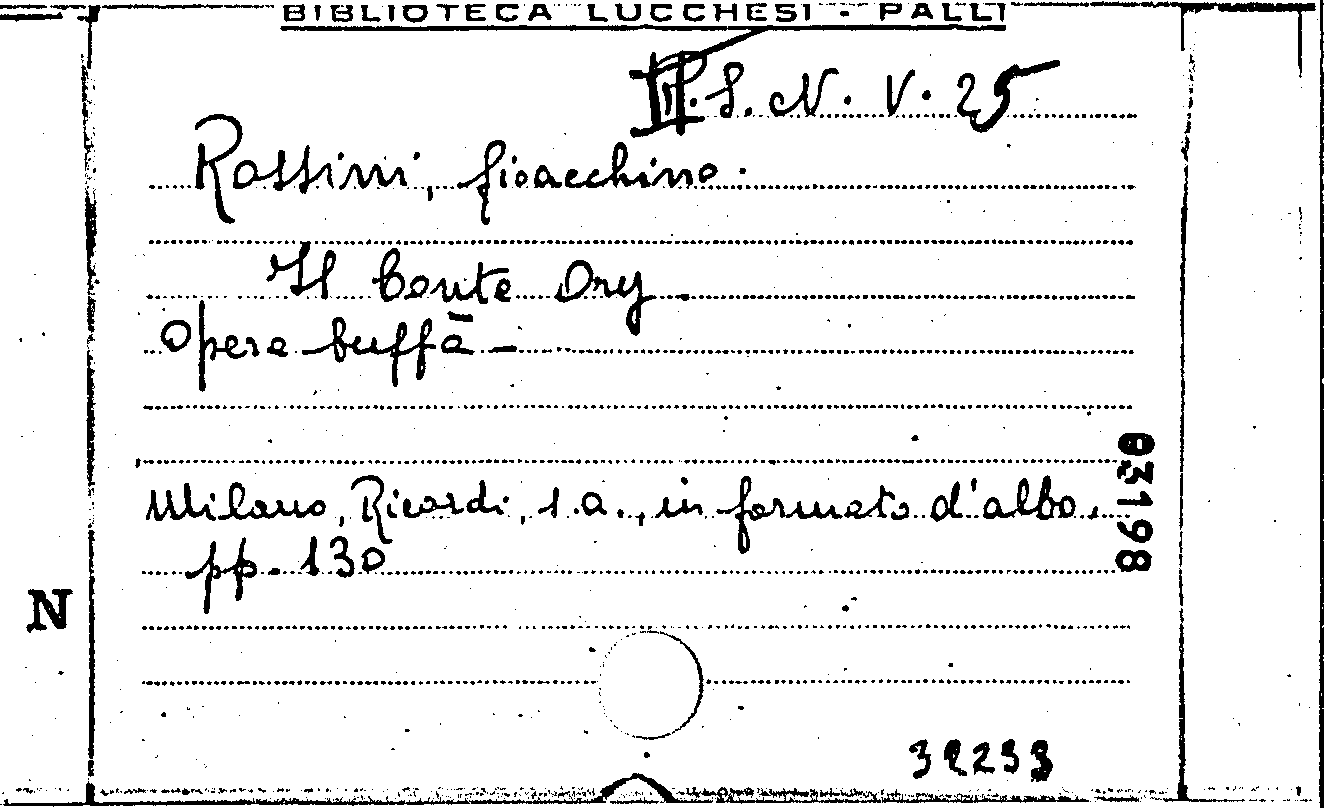 BIBLIOTECA LUCCHESI - PALLI
S. N. V. 25
Rossini, Gioacchino.
Il Conte Ory.
Opera buffa -
Milano, Ricordi, s.a., in formato d'albo.
pp. 130
03198
N